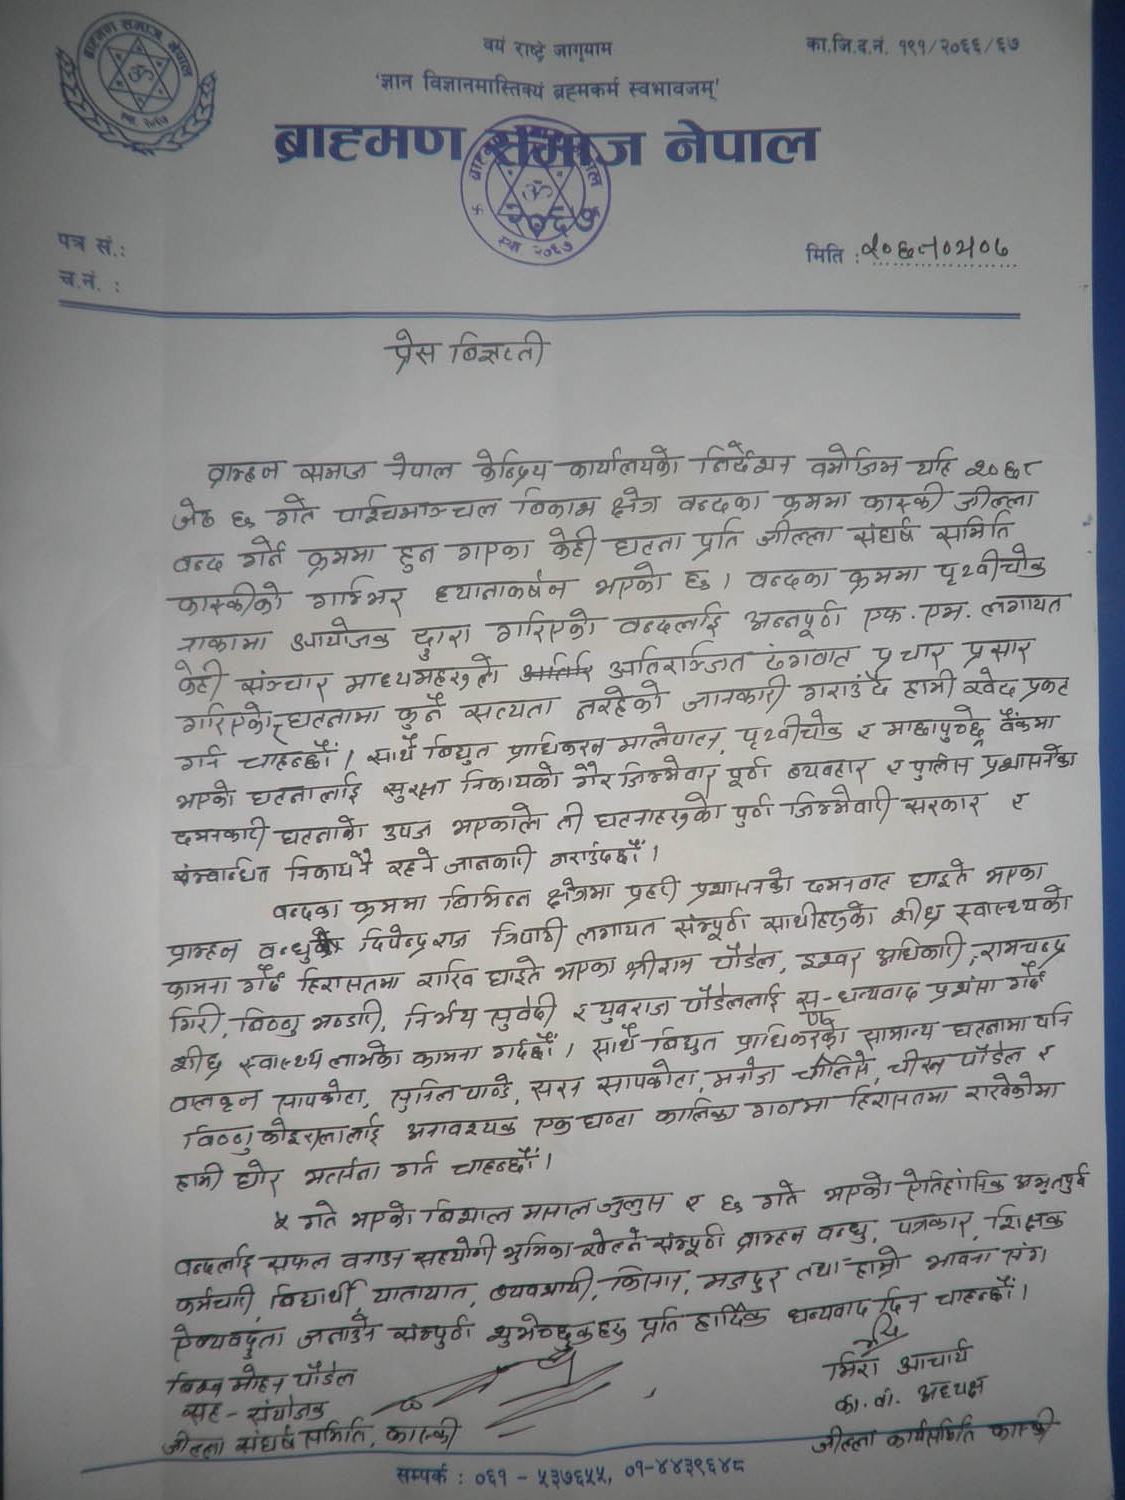 ब्राह्मण समाज, नेपाल
वयं राष्ट्रे जागृयाम
का.जि.द.नं. १९१/२०६६/६७
'ज्ञान विज्ञानमास्तिक्यं ब्रह्मकर्म स्वभावजम्'
ब्राह्मण समाज नेपाल
स्था २०६७
पत्र सं.:
मिति :
च.नं. :
प्रेस बिज्ञप्ती
ब्राम्हन समाज नेपाल केन्द्रिय कार्यालयको निर्देशन वमोजिम यहि २०६८
जेठ ६ गते पश्चिमाञ्चल विकास क्षेत्र वन्दका क्रममा कास्की जील्ला
वन्द गर्ने क्रममा हुन गएका केही घटना प्रति जील्ला संघर्ष समिति
कास्कीको गम्भिर ध्यानाकर्षन भएको छ । वन्दका क्रममा पृथ्वीचोक
नाकामा आयोजक द्वारा गरिएको वन्दलाई अन्नपूर्ण एफ. एम. लगायत
केही संञ्चार माध्यमहरुले अतिरञ्जित ढंगवाट प्रचार प्रसार
गरिएको घटनामा कुनै सत्यता नरहेको जानकारी गराउँदै हामी खेद प्रकट
गर्न चाहन्छौं । साथै विद्युत प्राधिकरन मालेपाटन, पृथ्वीचोक र माछापुच्छ्रे बैंकमा
भएको घटनालाई सुरक्षा निकायको गैर जिम्मेवार पूर्ण व्यवहार र पुलिस प्रशासनको
दमनकारी घटनाको उपज भएकाले ती घटनाहरुको पुर्ण जिम्मेवारी सरकार र
संम्वन्धित निकायनै रहने जानकारी गराउँदछौं ।
वन्दका क्रममा विभिन्न क्षेत्रमा प्रहरी प्रशासनको दमनवाट घाइते भएका
ब्राम्हन वन्धु दिपेन्द्र राज त्रिपाठी लगायत संम्पूर्ण साथीहरुको शीघ्र स्वास्थ्यको
कामना गर्दै हिरासतमा राखि घाइते भएका श्रीराम पौडेल, इश्वर अधिकारी, रामचन्द्र
गिरी, विष्णु भण्डारी, निर्भय सुवेदी र युवराज पौडेललाई स-धन्यवाद प्रशंसा गर्दै
शीघ्र स्वास्थ्य लाभको कामना गर्दछौं । साथै विद्युत प्राधिकरणको सामान्य घटनामा पनि
वालकृष्न सापकोटा, सुनिल पाण्डे, सापकोटा, मनोज पौडेल र
विष्णु कोइरालालाई अनावश्यक एक घण्टा कालिका गणमा हिरासतमा राखेकोमा
हामी घोर भर्त्सना गर्न चाहन्छौं ।
५ गते भएको विशाल मसाल जुलुस र ६ गते भएको ऐतिहासिक अभुतपुर्व
वन्दलाई सफल वनाउन सहयोगी भुमिका खेल्ने संम्पूर्ण ब्राम्हन वन्धु, पत्रकार, शिक्षक
कर्मचारी, विद्यार्थी, यातायात, व्यवसायी, किसान, मजदुर तथा हाम्रो भावना संग
ऐक्यवद्धता जनाउने संम्पुर्ण शुभेच्छुकहरु प्रति हार्दिक धन्यवाद दिन चाहन्छौं ।
मोहन पौडेल
सह-संयोजक
जील्ला संघर्ष समिति, कास्की
आचार्य
का. वा. अध्यक्ष
जील्ला कार्यसमिति कास्की
सम्पर्क : ०६१ - ५३७६५५, ०१-४४३९६४८